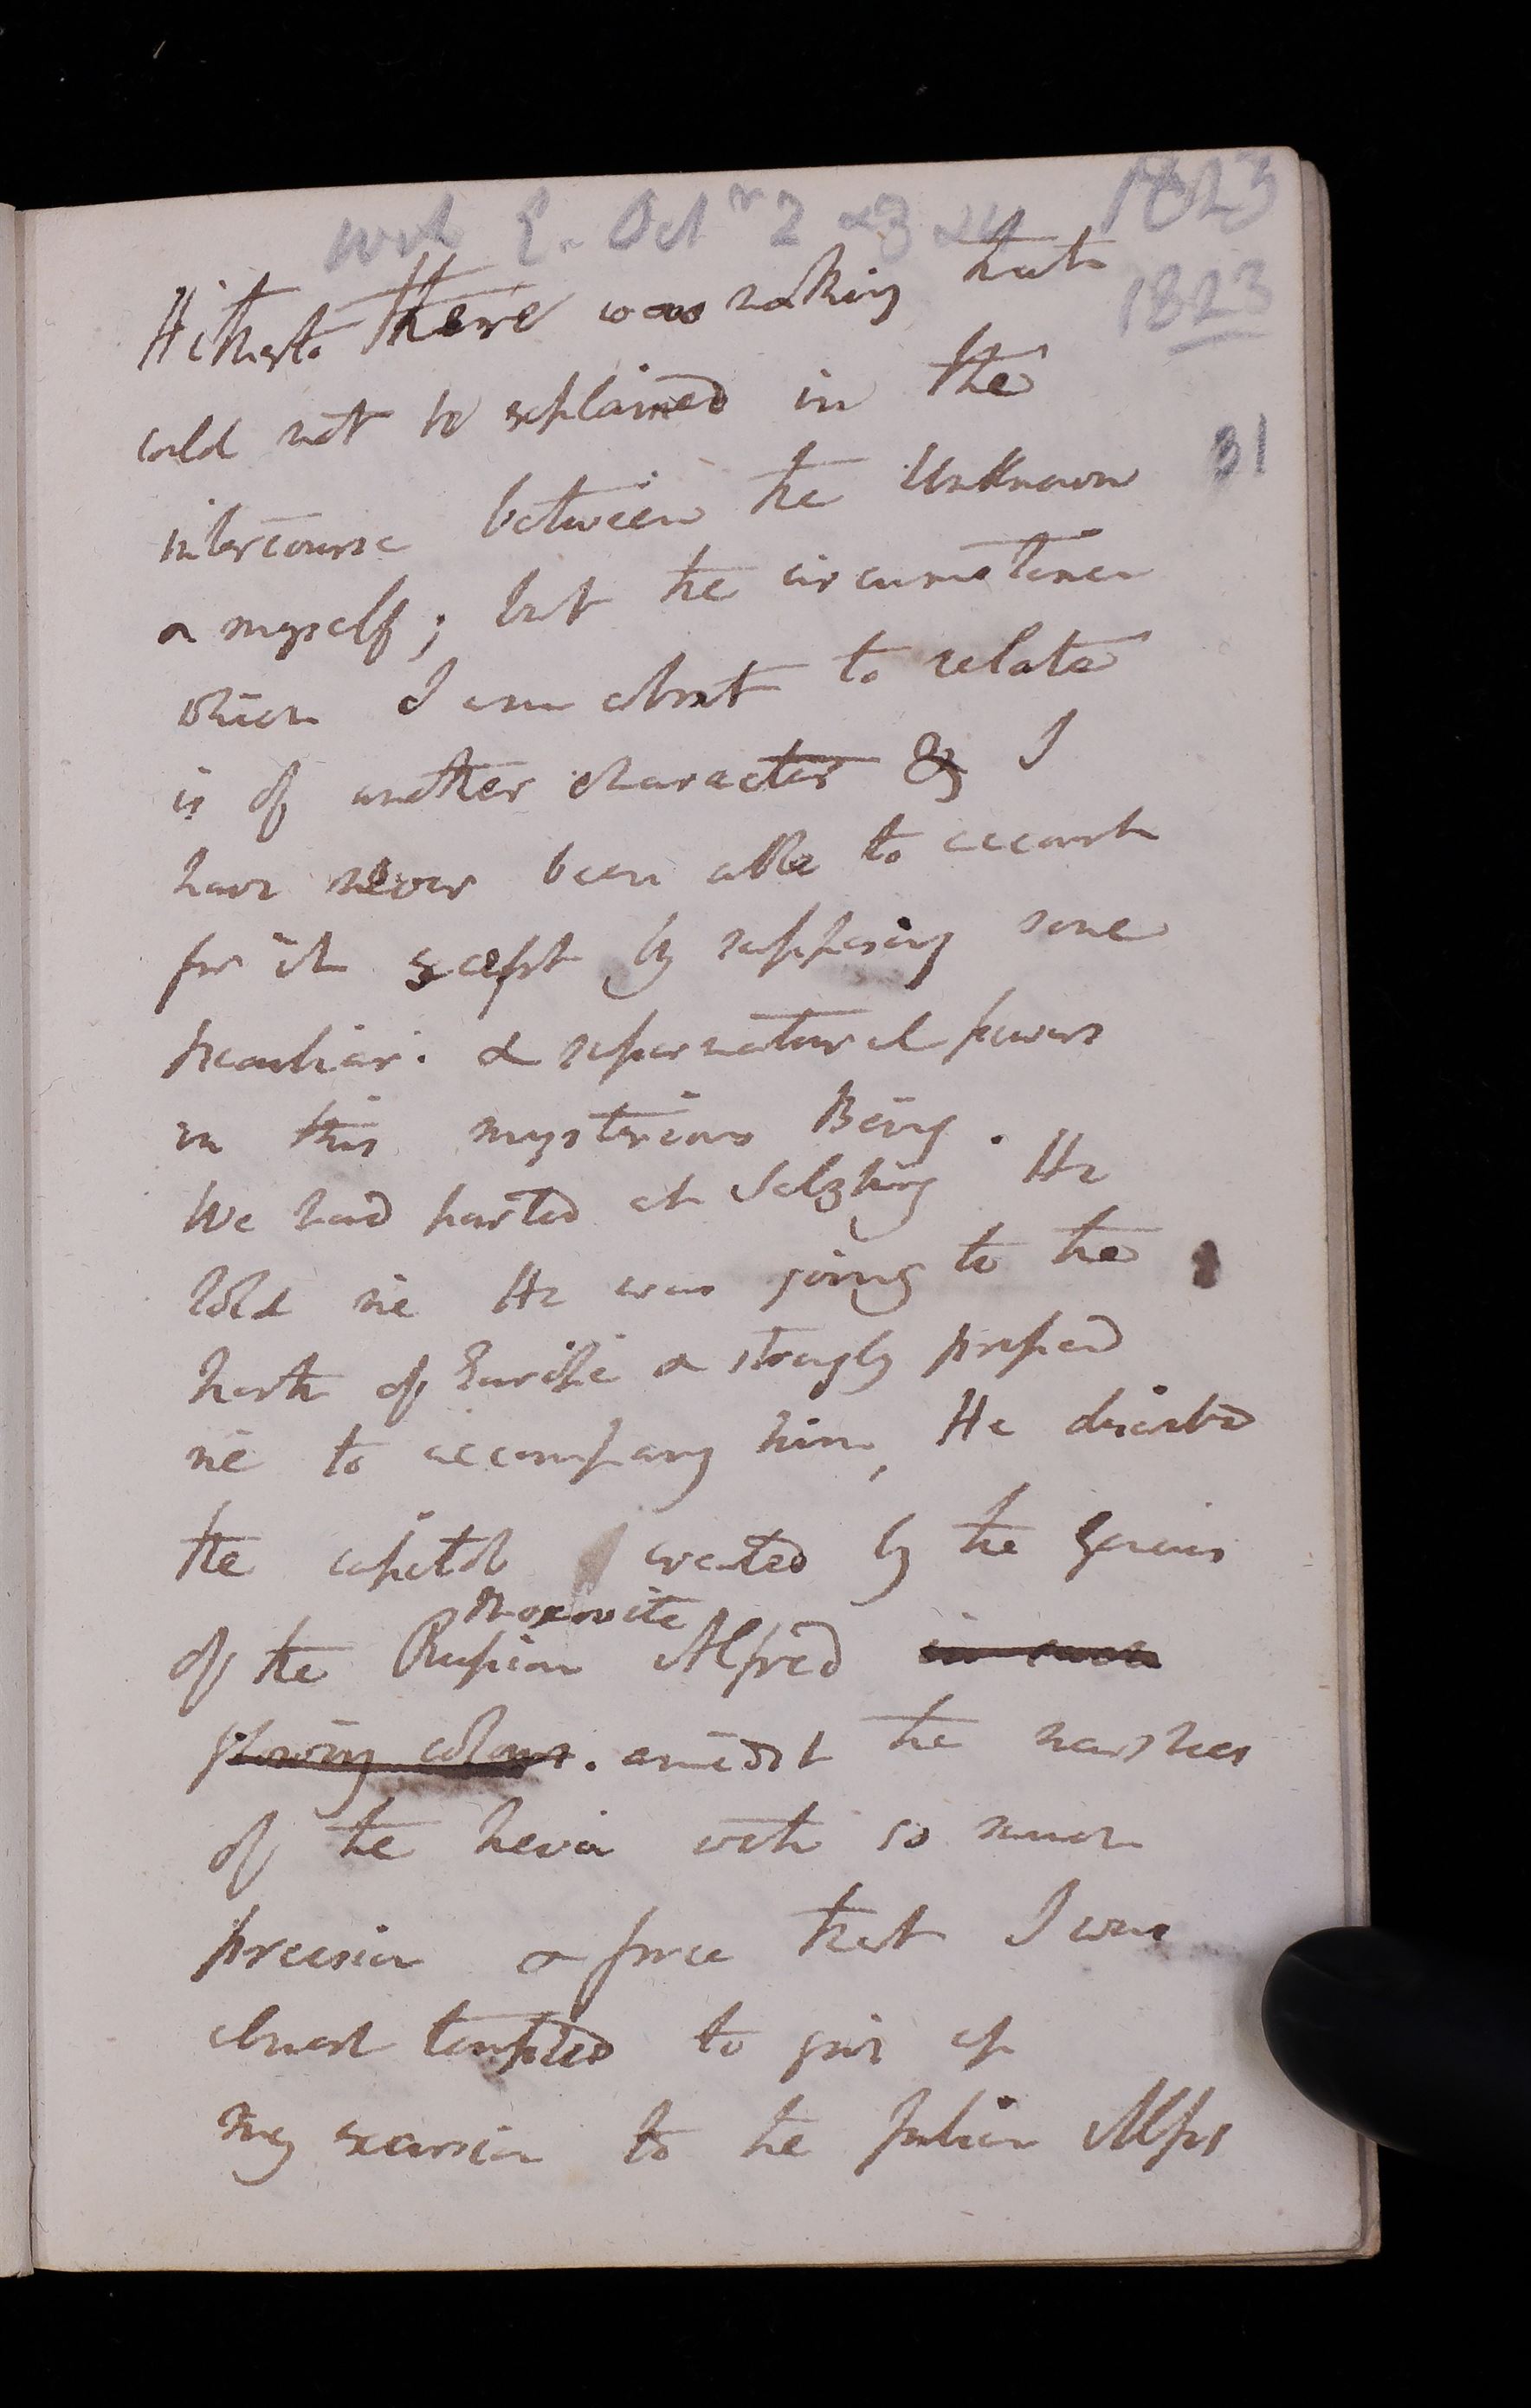 Oct^r 2 & 3 & 4 1823
Hitherto there was nothing that
1823
could not be explained in the
31
intercourse between the Unknown
& myself; but the circumstance
which I am about to relate
is of another character & I
have never been able to account
for it except by supposing some
peculiar & supernatural powers
in this mysterious Being.
We had parted at Salzburg He
told me He was going to the
north of Europe & strongly pressed
me to accompany him, He described
the capitol created by the Genius
Moscovite
of the Russian Alfred in such
glowing colours. amidst the marshes
of the Neva with so much
precision & force that I was
almost tempted to give up
my excursion to the Julian Alps